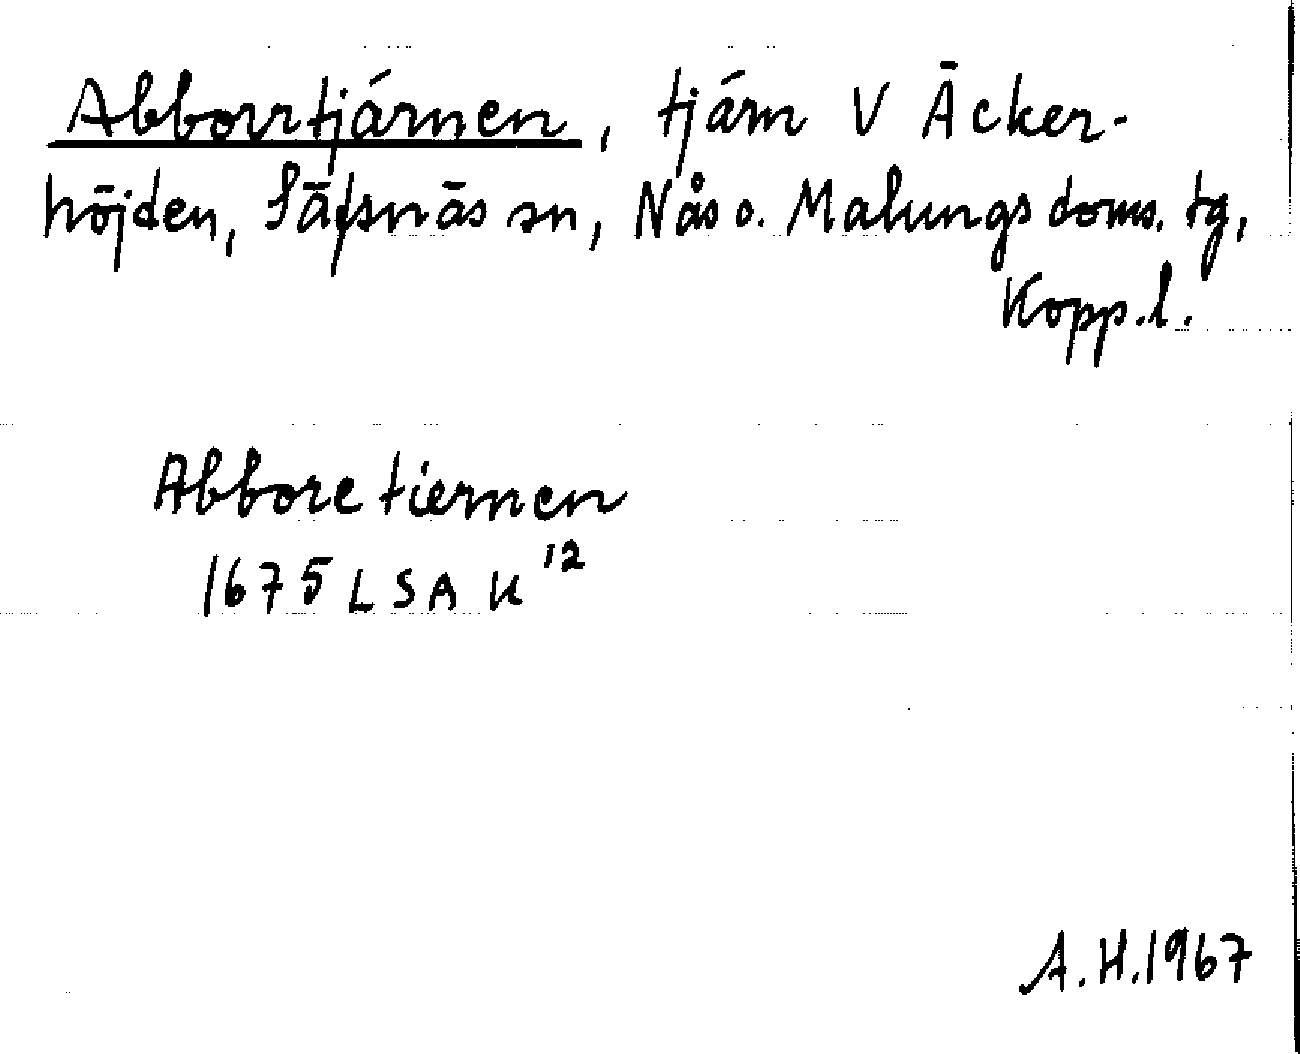 Abborrtjärnen, tjärn V Äcker-
höjden, Säfsnäs sn, Nås o. Malungs doms. tg,
Kopp. l.
Abboretiernen
1675 LSA U¹²
A.H. 1967